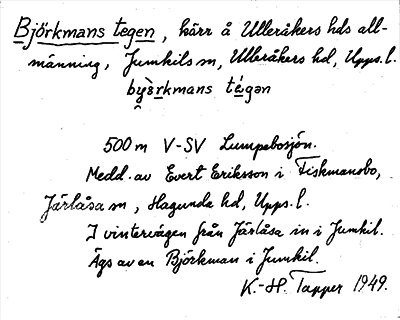 Björkmans tegen, kärr å Ulleråkers hds all-
männing, Jumkils sn, Ulleråkers hd, Upps. l.
bỳœ̀rkmans té̱gən
500 m V-SV Lumpebosjön.
Medd. av Evert Eriksson i Fiskmansbo,
Järlåsa sn, Hagunda hd, Upps. l.
I vintervägen från Järlåsa in i Jumkil.
Ägs av en Björkman i Jumkil.
K.-H. Tapper 1949.